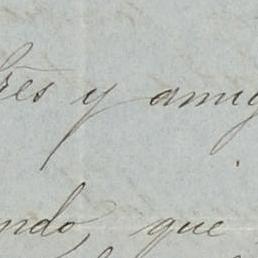 res y amig
ndo que